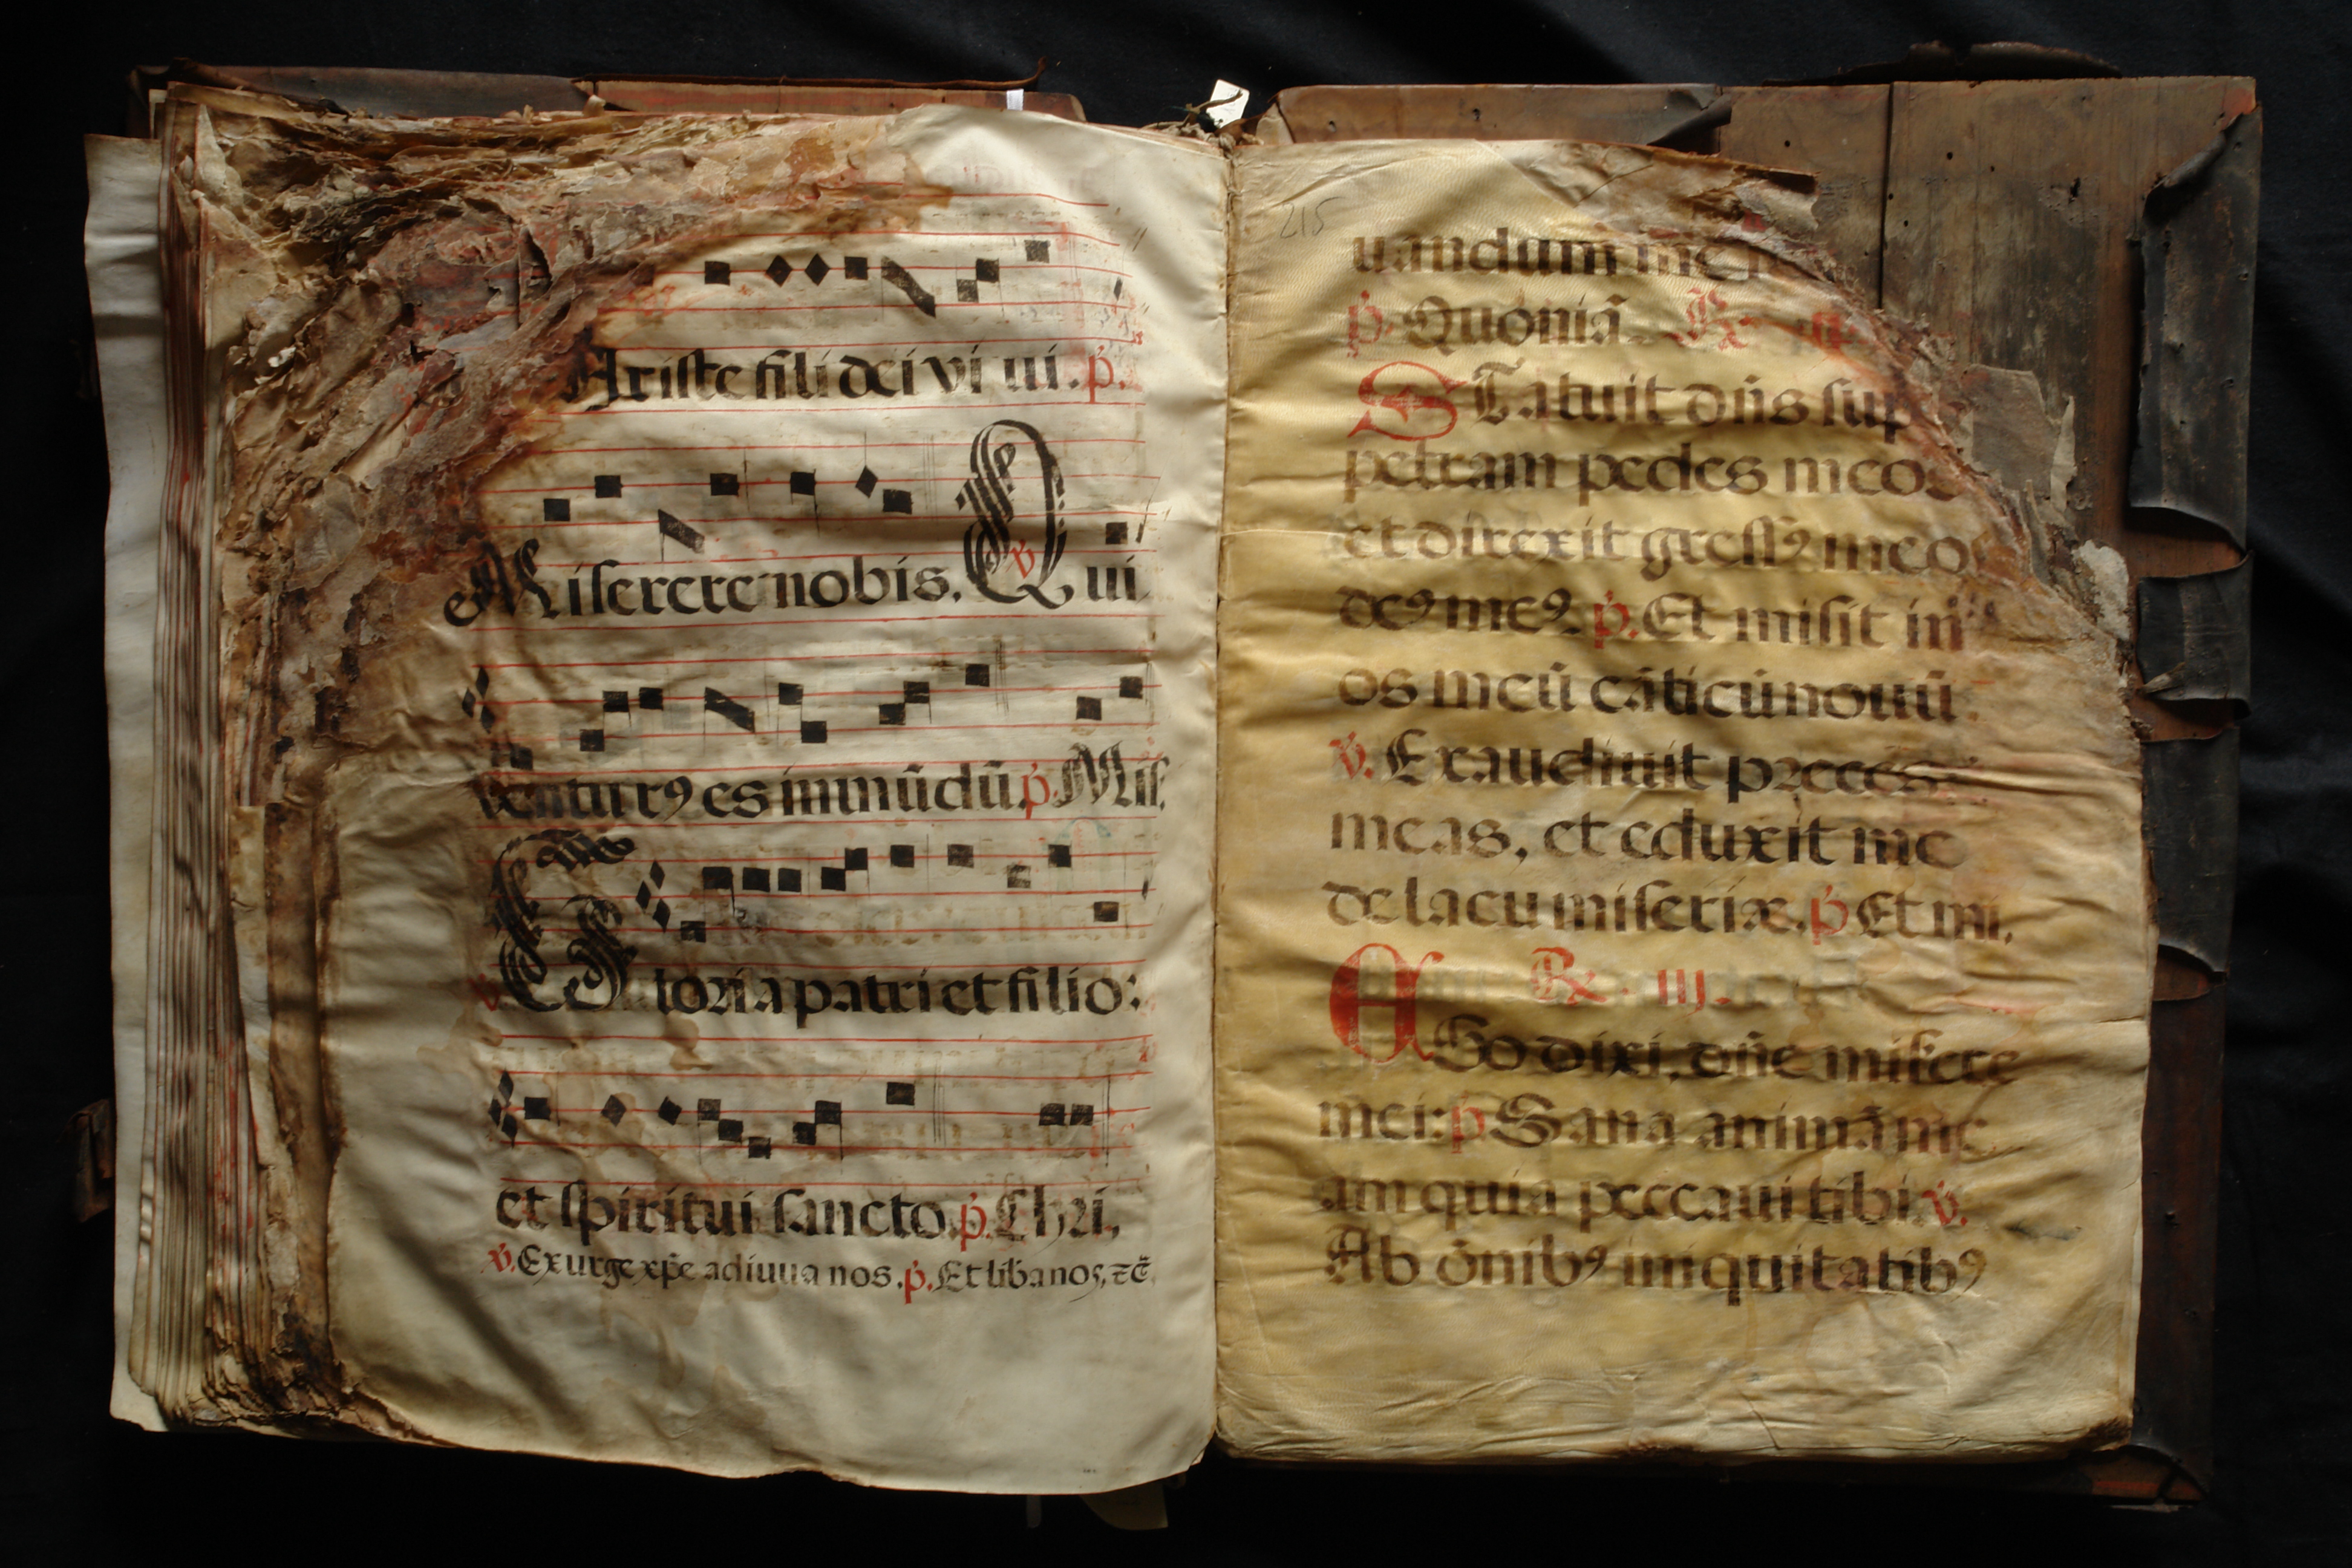 Xriste fili dei vi ui. p.
Miserere nobis. v Qui
venturꝯ es in mūdū. p. Mis.
v Gloria patri et filio:
et spiritui sancto. p. Chri,
v. Exurge xp̄e adiuua nos. p. Et libanos, ⁊c̄.
215
uandum me
p. Quoniā R
STatuit dn̄s sup
petram pedes meos
et direxit gressꝯ meo
deꝯ meꝯ. p. Et misit in
os meū cāticū nouū
v. Exaudiuit preces
meas, et eduxit me
de lacu miseriæ. p Et mi,
R. iij.
EGo dixi, dn̄e misere
mei: p Sana animā me
am quia peccaui tibi. v.
Ab ōnibꝯ iniquitatibꝯ